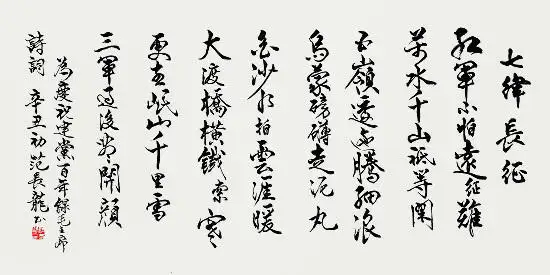 七律長征
紅軍不怕遠征難
萬水千山祇等閑
五嶺逶迤騰細浪
烏蒙磅礴走泥丸
金沙水拍雲涯暖
大渡橋橫鐵索寒
更喜岷山千里雪
三軍過後盡開顏
為慶祝建黨百年錄毛主席
詩詞 辛丑初范長龍書